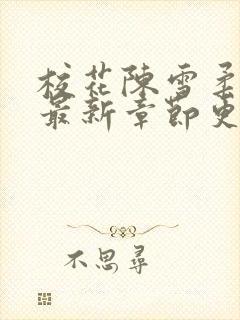 校花陳雪柔
最新章節更
不思尋